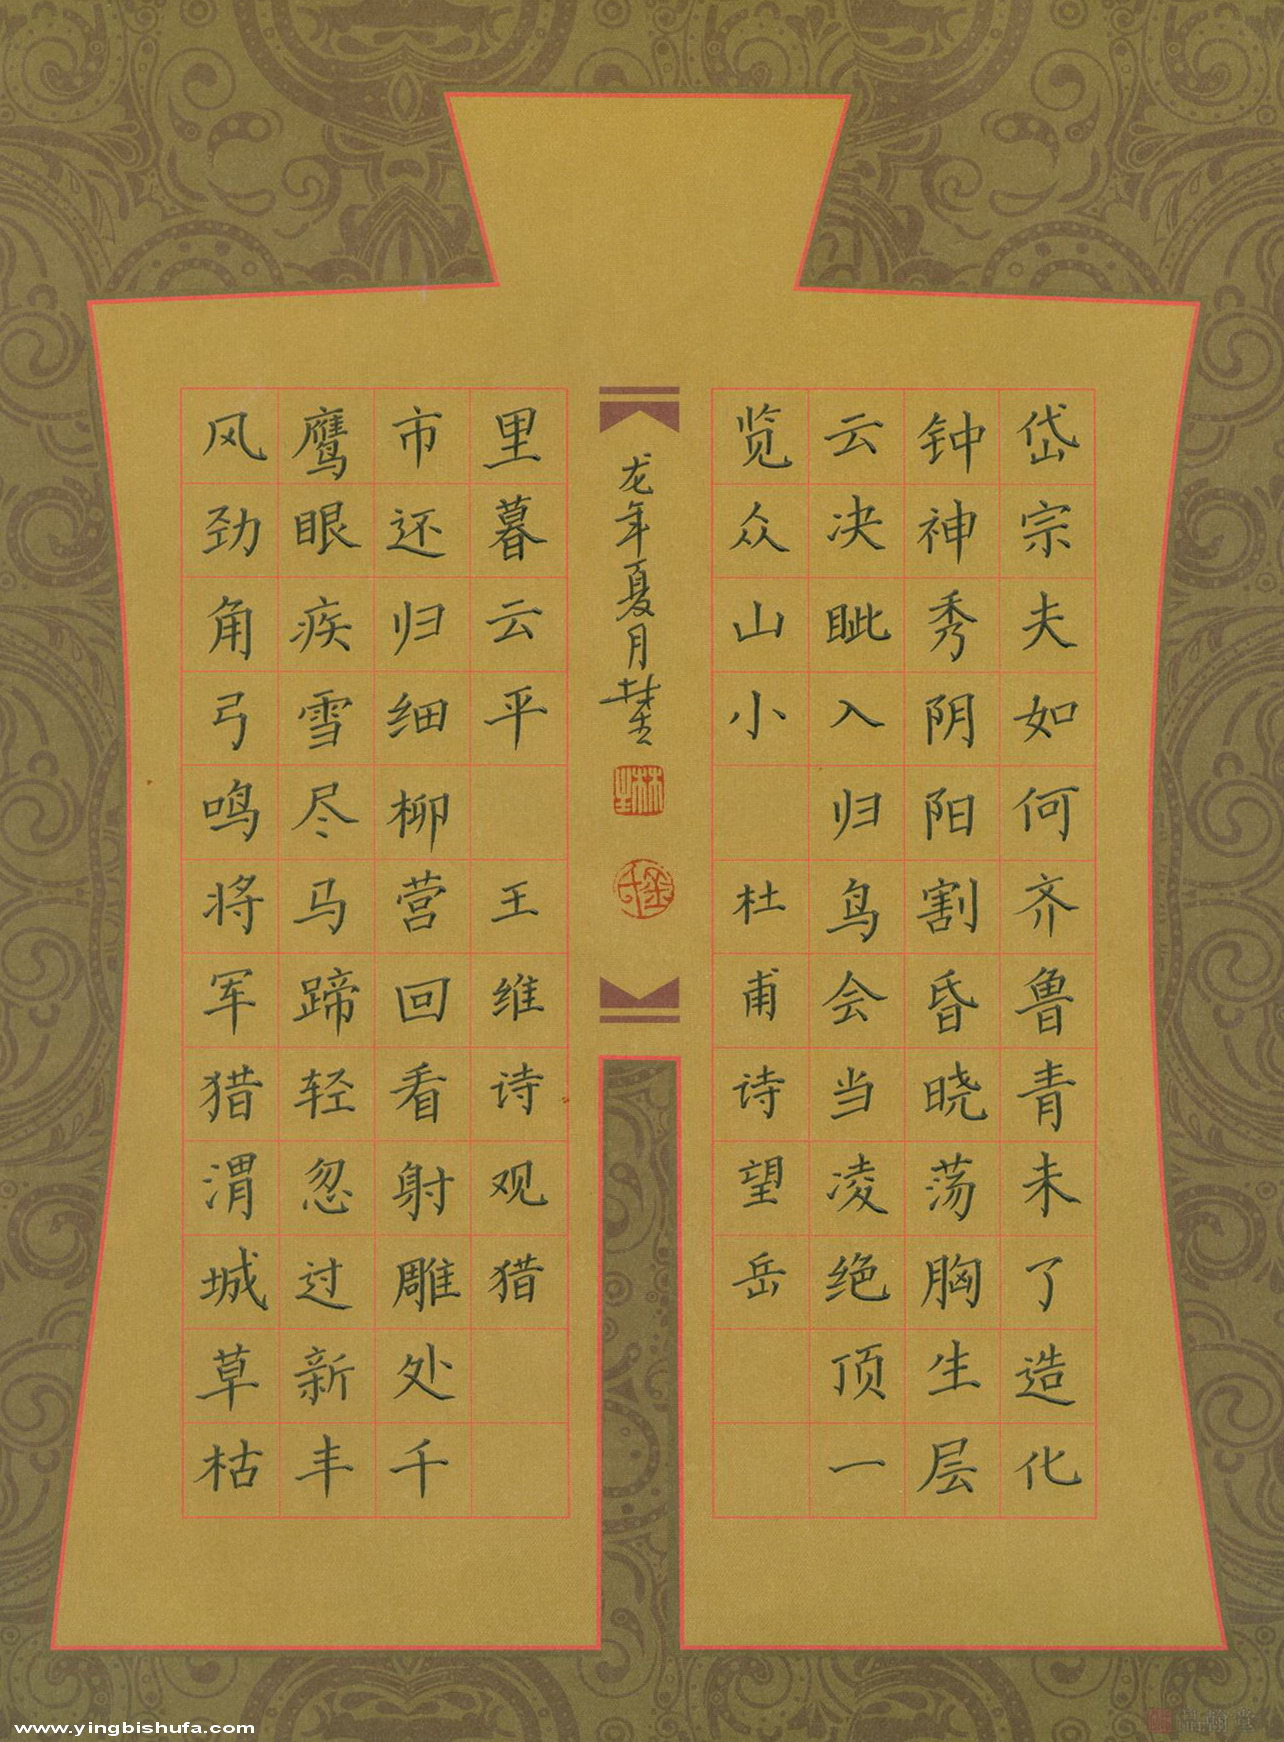 岱宗夫如何齐鲁青未了造化
钟神秀阴阳割昏晓荡胸生层
云决眦入归鸟会当凌绝顶一
览众山小 杜甫诗望岳
风劲角弓鸣将军猎渭城草枯
鹰眼疾雪尽马蹄轻忽过新丰
市还归细柳营回看射雕处千
里暮云平 王维诗观猎
龙年夏月
www.yingbishufa.com